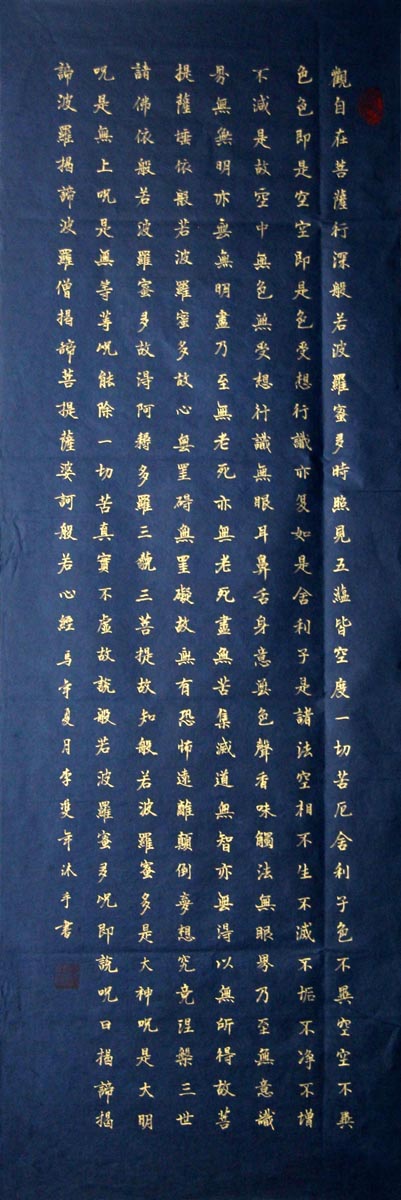 觀自在菩薩行深般若波羅蜜多時照見五蘊皆空度一切苦厄舍利子色不異空空不異
色色即是空空即是色受想行識亦复如是舍利子是諸法空相不生不滅不垢不净不增
不減是故空中無色無受想行識無眼耳鼻舌身意無色聲香味觸法無眼界乃至無意識
界無無明亦無無明盡乃至無老死亦無老死盡無苦集滅道無智亦無得以無所得故菩
提薩埵依般若波羅蜜多故心無罣碍無罣礙故無有恐怖遠離顛倒夢想究竟涅槃三世
諸佛依般若波羅蜜多故得阿耨多羅三藐三菩提故知般若波羅蜜多是大神呪是大明
呪是無上呪是無等等呪能除一切苦真實不虛故說般若波羅蜜多呪即說呪曰揭諦揭
諦波羅揭諦波羅僧揭諦菩提薩婆訶般若心經 馬年夏月李雙年沐手書